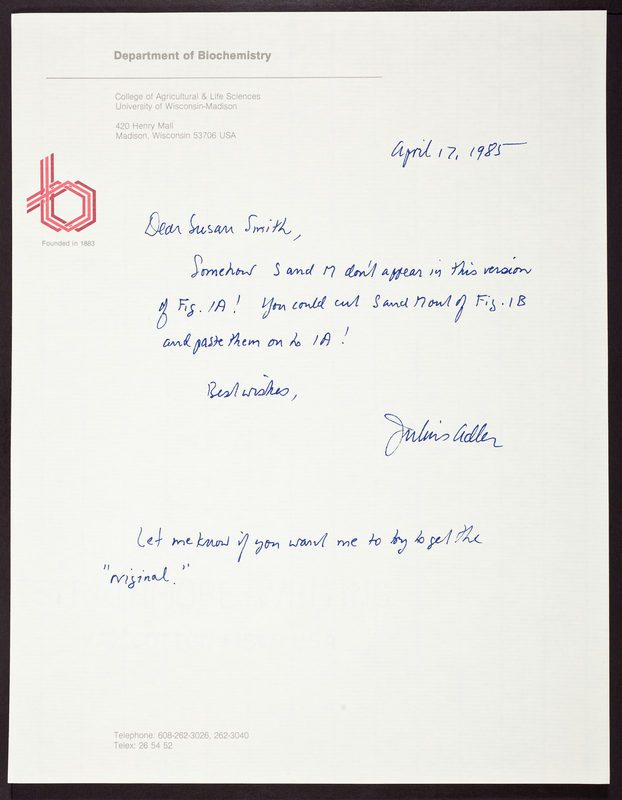 Department of Biochemistry
College of Agricultural & Life Sciences
University of Wisconsin-Madison
420 Henry Mall
Madison, Wisconsin 53706 USA
Founded in 1883
April 17, 1985
Dear Susan Smith,
Somehow S and M don't appear in this version
of Fig. 1A! You could cut S and M out of Fig. 1B
and paste them on to 1A!
Best wishes,
Julius Adler
Let me know if you want me to try to get the
"original."
Telephone: 608-262-3026, 262-3040
Telex: 26 54 52